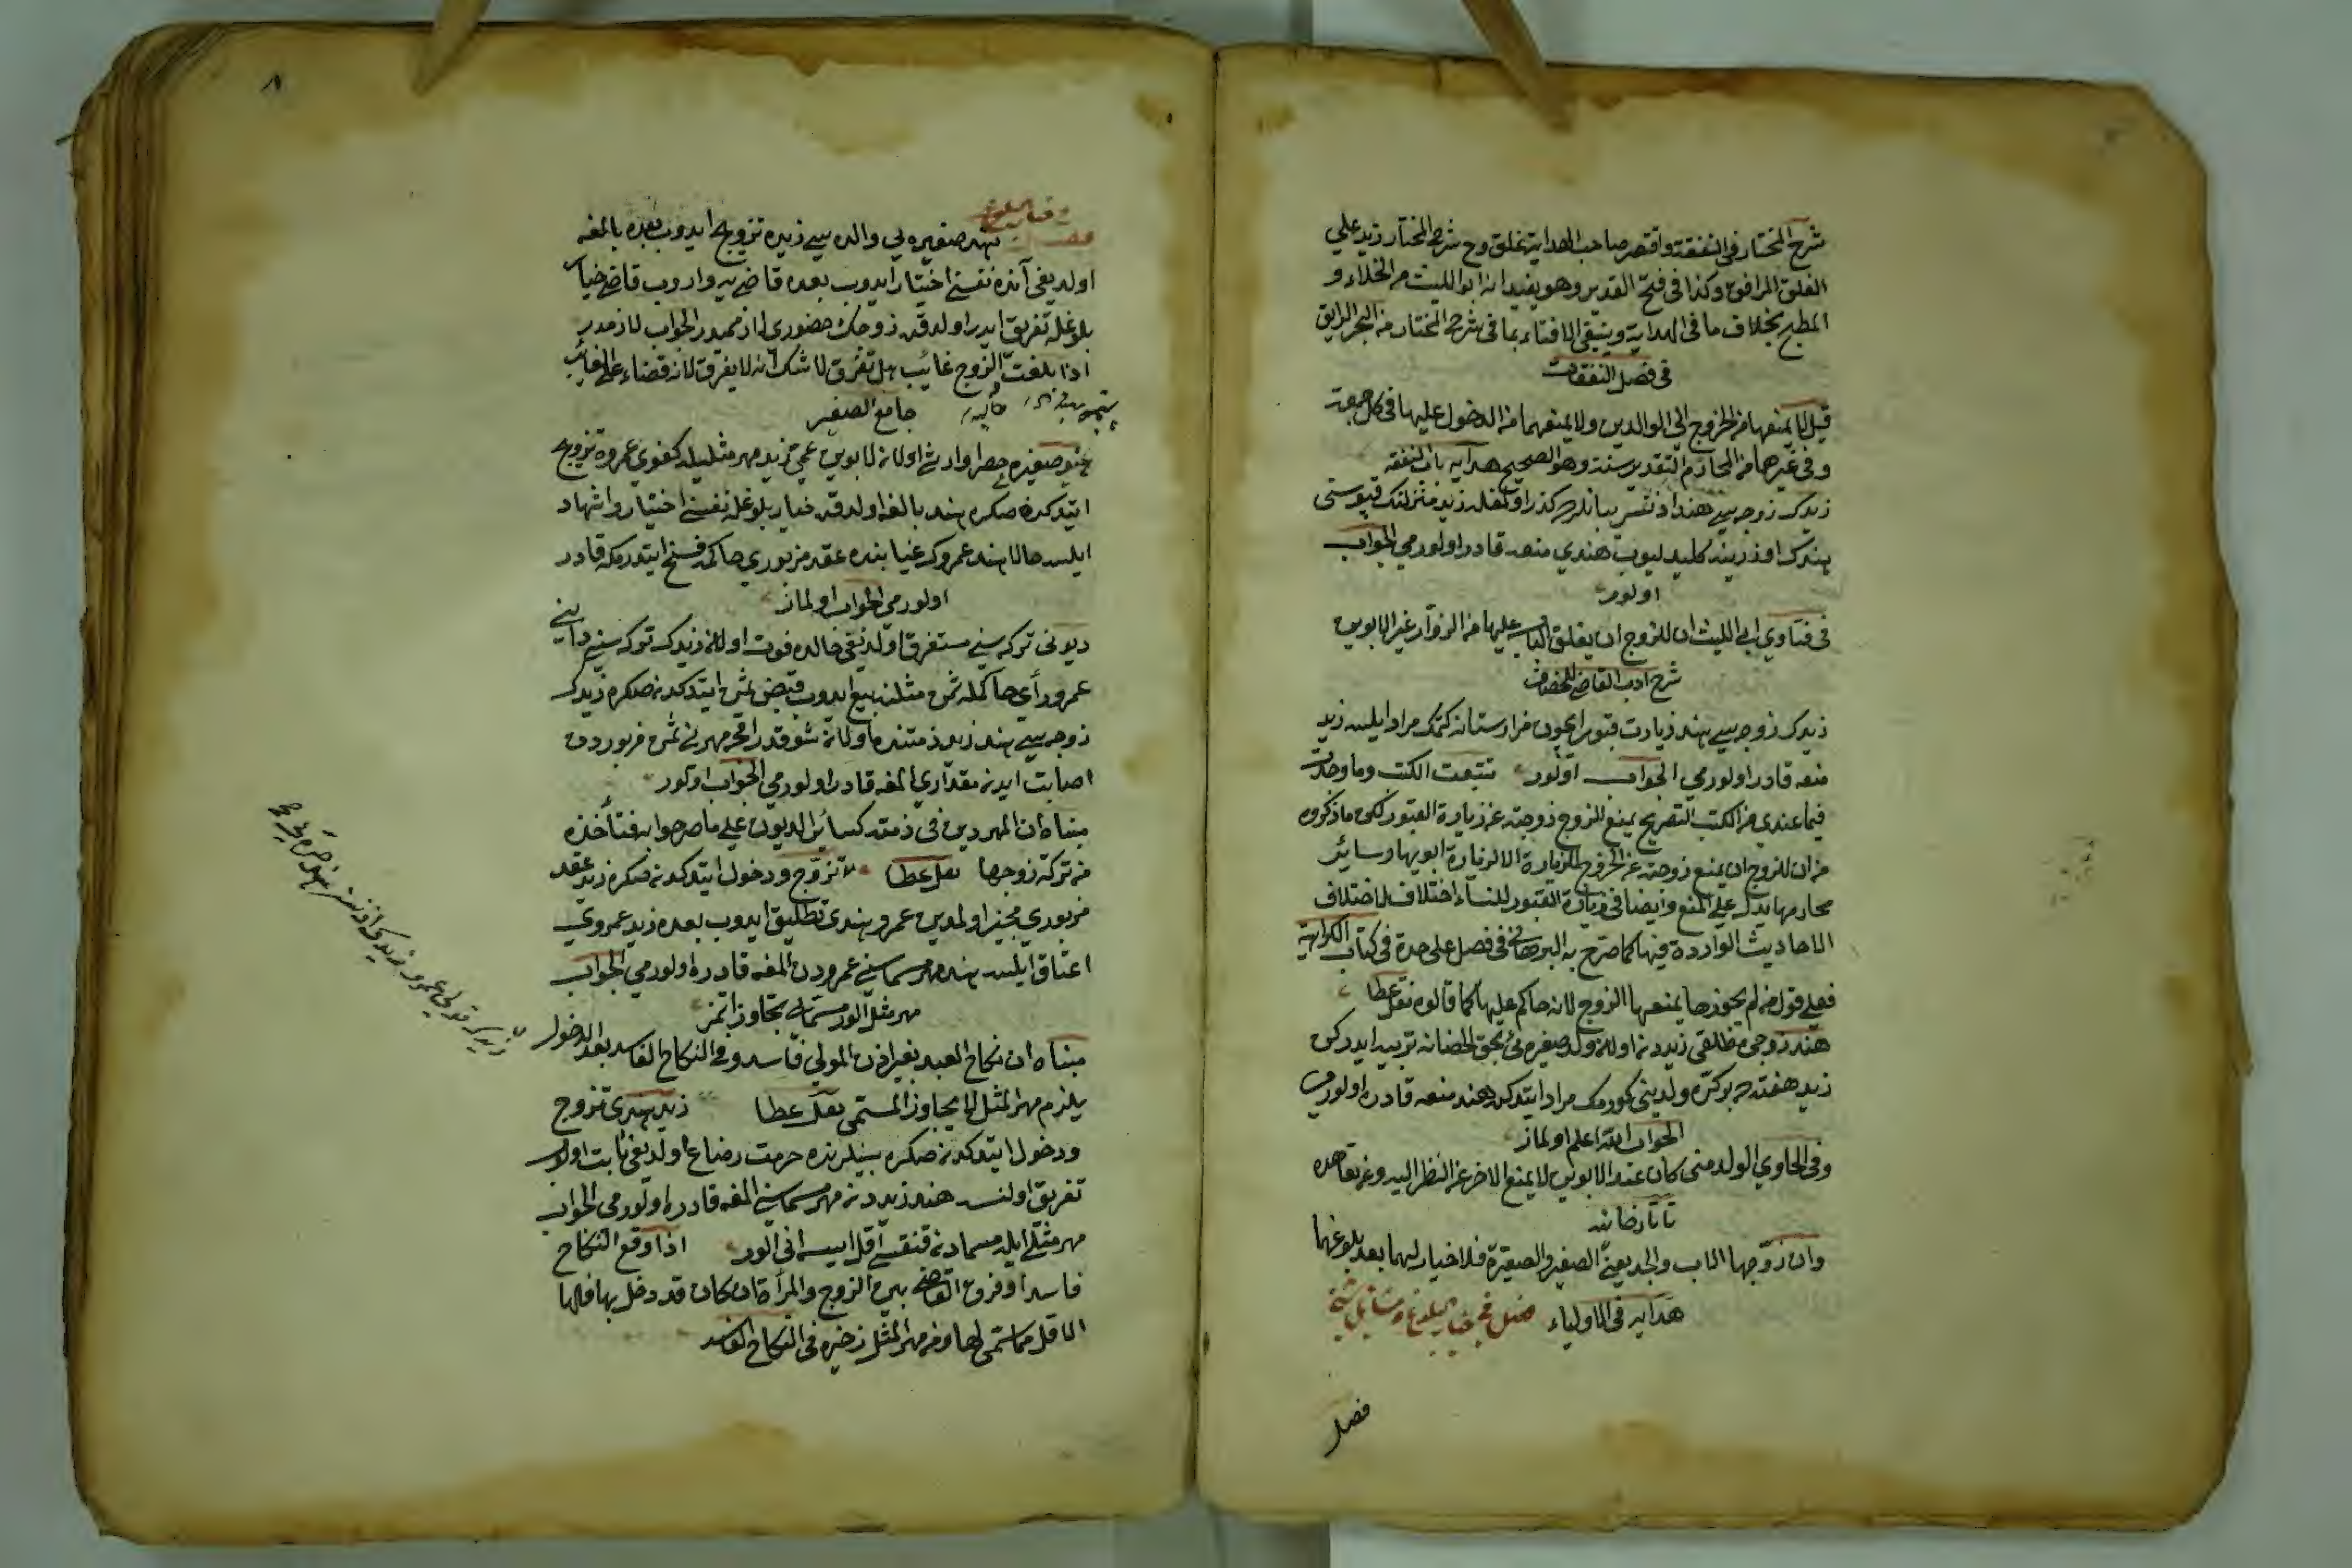 شرح المختار فى النفقة واقتصر صاحب الهداية بغلق وح شرح المختار زيد علي
الغلق المرافق وكذا فى فتح القدير وهو يفيد انه ابو الليث من الخلاء و
المطبخ بخلاف ما فى الهداية وينبغى الافتاء بما فى شرح المختار من البحر الرايق
فى فصل النفقات
قيل لا يمنعها من الخروج الى الوالدين ولا يمنعهما من الدخول عليها فى كل جمعة
وفى غيرهما من المحارم التقدير بسنة وهو الصحيح هدايه باب النفقه
زيدك زوجه سى هند اذنسز كذر اولمغله زيد منزلنك قپوسنى
هندك اوزرينه كليدليوب هندي منعه قادر اولورمي الجواب
اولور
فى فتاوي ابى الليث ان للزوج ان يغلق الباب عليها من الزوار غير الابوين
شرح ادب القاضى للخصاف
زيدك زوجه سى هند زيارت قبور ايچون مزارستانه كتمك مراد ايلسه زيد
منعه قادر اولورمي الجواب اولور تتبعت الكتب وما وجدت
فيما عندى من الكتب التصريح بمنع الزوج زوجته عن زيارة القبور لكن ما ذكروه
من ان للزوج ان يمنع زوجته عن الخروج للزيارة الا لزيارة ابويها وسائر
محارمها يدل على المنع وايضا فى زيارة القبور للنساء اختلاف لاختلاف
الاحاديث الواردة فيها كما صرح به البرهان فى فصل على حدة فى كتاب الكراهية
فعلى قول من لم يجوزها يمنعها الزوج لانه حاكم عليها كما قالوه نقل عطا
هند زوجى مطلقى زيددن اولان ولد صغيره بى بحق الحضانه تربيه ايدركن
زيد هفته ده بر كره ولدينى كورمك مراد ايتدكده هند منعه قادره اولورمى
الجواب الله اعلم اولماز
وفى الحاوي الولد متى كان عند الابوين لا يمنع الاخر عن النظر اليه وعن تعاهده
تاتارخانيه
وان زوجها الاب والجد يعنى الصغير والصغيرة فلا خيار لهما بعد بلوغهما
هدايه فى الاولياء فصل فى خيار البلوغ ومسائل شتى
فصل
٨
هند صغيره يى والده سى زيده تزويج ايدوب بعده بالغه
اولديغى آنده نفسنى اختيار ايدوب بعده قاضى يه واروب قاضى خيار
بلوغله تفريق ايدر اولدقده زوجك حضورى لازمميدر الجواب لازمدر
اذا بلغت الزوج غائب هل تفرق لا شك انه لا يفرق لانه قضاء على الغائب
جامع الصغير
هند صغيره حصرا وارثى اولان لابوين عمى زيد مهر مثليله كفوي عمروه تزويج
ايتدكدنصكره هند بالغه اولدقده خيار بلوغله نفسنى اختيار واشهاد
ايلسه حالا هند عمروك غيابنده عقد مزبوري حاكمه فسخ ايتدرمكه قادر
اولورمى الجواب اولماز
ديونى تركه سنى مستغرق اولديغى حالده فوت اولان زيدك تركه سنى دايني
عمرو رأي حاكمله ثمن مثلنه بيع ايدوب قبض ثمن ايتدكدنصكره زيدك
زوجه سى هند زيد ذمتنده اولان شو قدر اقچه مهرنى ثمن مزبوردن
اصابت ايدن مقداري المغه قادر اولورمى الجواب اولور
مبناه ان المهر دين فى ذمته كسائر الديون على ما صرحوا به فتأخذه
من تركة زوجها نقل عطا تزوج ودخول ايتدكدنصكره زيد عقد
مزبوري مجيز اولمدين عمرو هندى تطليق ايدوب بعده زيد عمروي
اعتاق ايلسه هند مهر مسماسنى عمرودن المغه قادره اولورمى الجواب
مهر مثل الور مسمادن تجاوز ايتمز
مبناه ان نكاح العبد بغير اذن المولى فاسد وفى النكاح الفاسد بعد الدخول
يلزم مهر المثل لا يجاوز المسمى نقل عطا زيد هندى تزوج
ودخول ايتدكدنصكره بينلرنده حرمت رضاع اولديغى ثابت اولوب
تفريق اولنسه هند زيددن مهر مسماسنى المغه قادره اولورمى الجواب
مهر مثلى ايله مسمادن قنقسى اقل ايسه انى الور اذا وقع النكاح
فاسدا وفرق القاضى بين الزوج والمرأة ان كان قد دخل بها فلها
الاقل مما سمى لها ومن مهر المثل ذخيره فى النكاح الفاسد